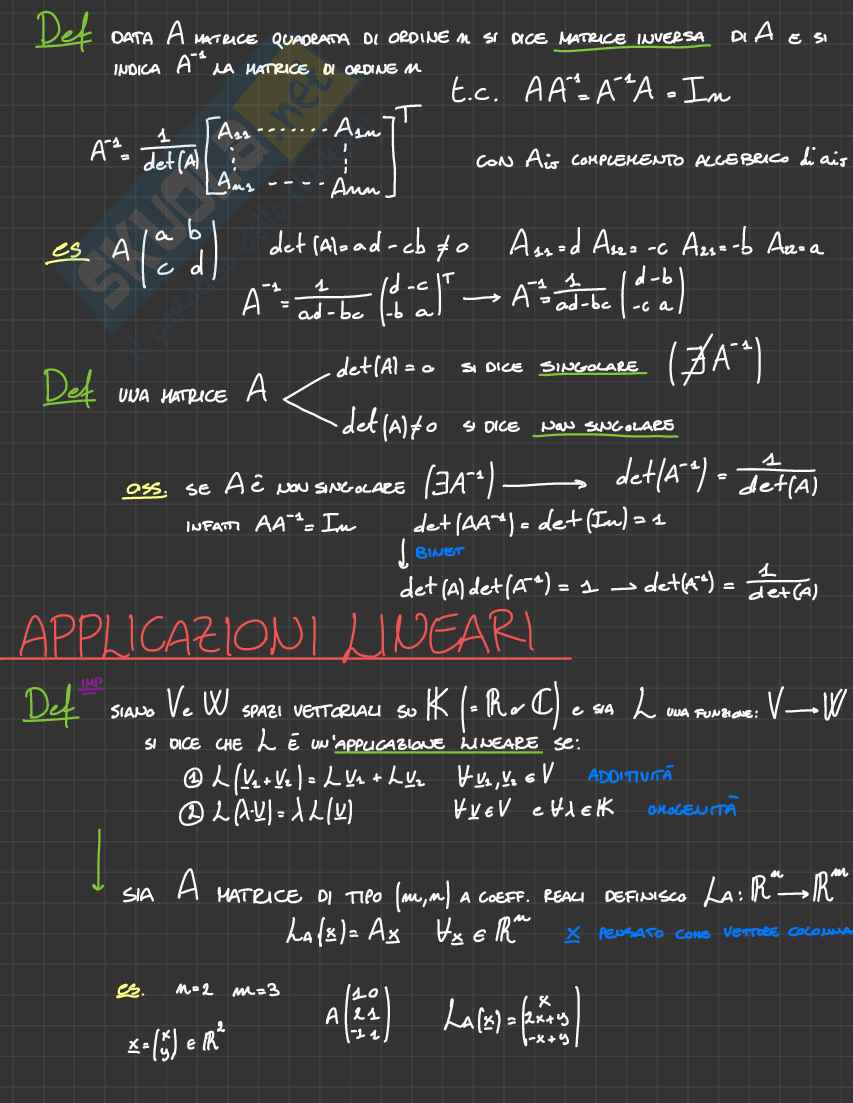 Def DATA A MATRICE QUADRATA DI ORDINE n SI DICE MATRICE INVERSA DI A E SI
INDICA A⁻¹ LA MATRICE DI ORDINE n
t.c. AA⁻¹ = A⁻¹A = In
A⁻¹ = 1/det(A) [A₁₁ ------- A₁n ⋮ ⋮ An₁ ---- Ann]ᵀ CON Aij COMPLEMENTO ALGEBRICO di aij
es A (a b / c d) det(A) = ad - cb ≠ 0 A₁₁ = d A₁₂ = -c A₂₁ = -b A₂₂ = a
A⁻¹ = 1/(ad-bc) (d -c / -b a)ᵀ → A⁻¹ = 1/(ad-bc) (d -b / -c a)
det(A) = 0 SI DICE SINGOLARE (∄ A⁻¹)
Def UNA MATRICE A
det(A) ≠ 0 SI DICE NON SINGOLARE
oss. SE A È NON SINGOLARE (∃A⁻¹) → det(A⁻¹) = 1/det(A)
INFATTI AA⁻¹ = In det(AA⁻¹) = det(In) = 1
↓ BINET
det(A) det(A⁻¹) = 1 → det(A⁻¹) = 1/det(A)
APPLICAZIONI LINEARI
Def IMP SIANO V e W SPAZI VETTORIALI SU K (= R or C) e SIA L UNA FUNZIONE: V → W
SI DICE CHE L È UN'APPLICAZIONE LINEARE SE:
① L(v₁+v₂) = Lv₁ + Lv₂ ∀ v₁,v₂ ∈ V ADDITIVITÀ
② L(λ·v) = λL(v) ∀ v ∈ V e ∀ λ ∈ K OMOGENITÀ
SIA A MATRICE DI TIPO (m,n) A COEFF. REALI DEFINISCO LA: Rⁿ → Rᵐ
LA(x) = Ax ∀x ∈ Rⁿ x PENSATO COME VETTORE COLONNA
es. n=2 m=3 A (1 0 / 2 1 / -1 1) LA(x) = (x / 2x+y / -x+y)
x = (x / y) ∈ R²
SKUOLA.net